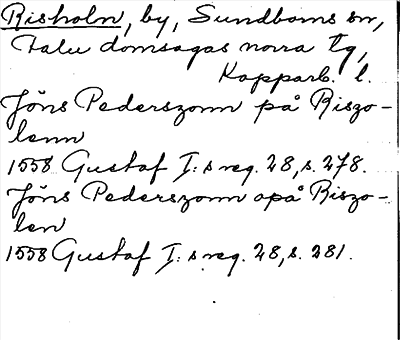 Risholn, by, Sundborns sn,
Falu domsagas norra tg,
Kopparb. l.
Jöns Pederszonn på Riszo-
lenn
1558 Gustaf I:s reg. 28, s. 278.
Jöns Pederszonn opå Riszo-
len
1558 Gustaf I:s reg. 28, s. 281.